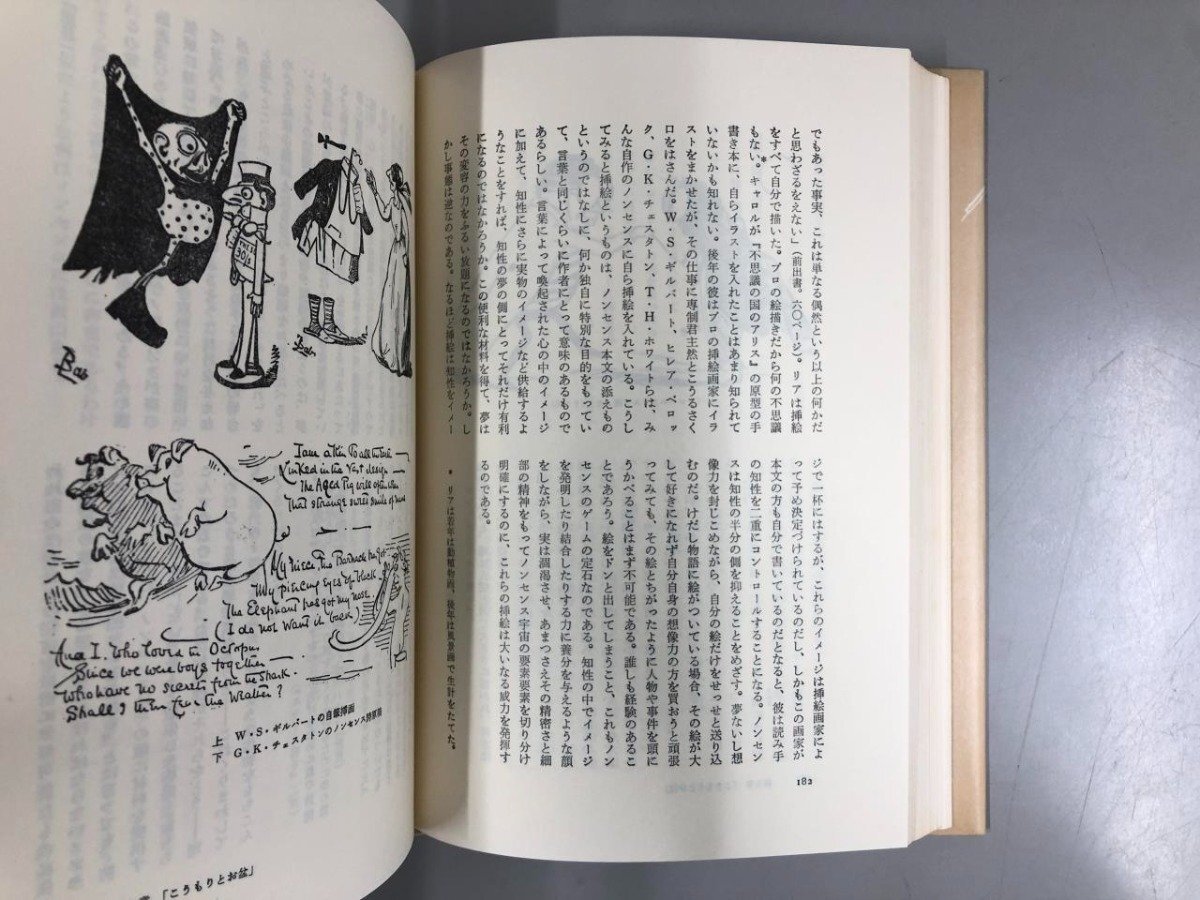 でもあった事実、これは単なる偶然という以上の何かだ
と思わざるをえない」(前出書。六〇ページ)。リアは挿絵
をすべて自分で描いた。プロの絵描きだから何の不思議
もない。*キャロルが『不思議の国のアリス』の原型の手
書き本に、自らイラストを入れたことはあまり知られて
いないかも知れない。後年の彼はプロの挿絵画家にイラ
ストをまかせたが、その仕事に専制君主然とこうるさく
口をはさんだ。W・S・ギルバート、ヒレア・ベロッ
ク、G・K・チェスタトン、T・H・ホワイトらは、み
んな自作のノンセンスに自ら挿絵を入れている。こうし
てみると挿絵というものは、ノンセンス本文の添えもの
というのではなしに、何か独自に特別な目的をもってい
て、言葉と同じくらいに作者にとって意味のあるもので
あるらしい。言葉によって喚起された心の中のイメージ
に加えて、知性にさらに実物のイメージなど供給するよ
うなことをすれば、知性の夢の側にとってそれだけ有利
になるのではなかろうか。この便利な材料を得て、夢は
その変容の力をふるい放題になるのではなかろうか。し
かし事態は逆なのである。なるほど挿絵は知性をイメー
ジで一杯にはするが、これらのイメージは挿絵画家によ
って予め決定づけられているのだし、しかもこの画家が
本文の方も自分で書いているのだとなると、彼は読み手
の知性を二重にコントロールすることになる。ノンセン
スは知性の半分の側を抑えることをめざす。夢ないし想
像力を封じこめながら、自分の絵だけをせっせと送り込
むのだ。けだし物語に絵がついている場合、その絵が大
して好きになれず自分自身の想像力の方を買おうと頑張
ってみても、その絵とちがったように人物や事件を頭に
うかべることはまず不可能である。誰しも経験のあるこ
とであろう。絵をドンと出してしまうこと、これもノン
センスのゲームの定石なのである。知性の中でイメージ
を発明したり結合したりする力に養分を与えるような顔
をしながら、実は涸渇させ、あまつさえその精密さと細
部の精神をもってノンセンス宇宙の要素要素を切り分け
明確にするのに、これらの挿絵は大いなる威力を発揮す
るのである。
* リアは若年は動植物画、後年は風景画で生計をたてた。
182
I am a thin
inked in the
The Aged Pig will often
That strange sweet smile of
My piercing eyes of black
The Elephant has got my nose
(I do not want it back)
And I. Who loved the Octopus
Since we were boys together
Who have no secrets from the Shark
Shall I
上 W・S・ギルバートの自筆挿画
下 G・K・チェスタトンのノンセンス
「こうもりとお盆」